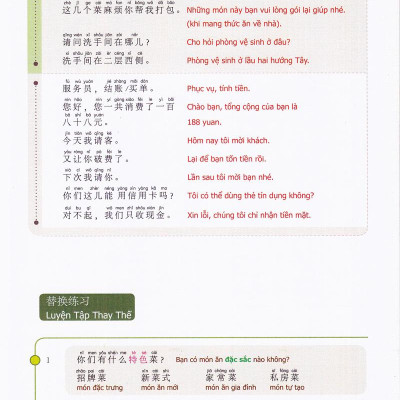 zhè jǐ gè cài má fan nǐ bāng wǒ dǎ bāo
这几个菜麻烦你帮我打包。 Những món này bạn vui lòng gói lại giúp nhé.
(khi mang thức ăn về nhà).
qǐng wèn xǐ shǒu jiān zài nǎr
请问洗手间在哪儿? Cho hỏi phòng vệ sinh ở đâu?
xǐ shǒu jiān zài èr céng xī cè
洗手间在二层西侧。 Phòng vệ sinh ở lầu hai hướng Tây.
fú wù yuán jié zhàng mǎi dān
服务员，结账/买单。 Phục vụ, tính tiền.
nín hǎo nín yí gòng xiāo fèi le yì bǎi
您好，您一共消费了一百 Chào bạn, tổng cộng của bạn là
bā shí bā yuán
八十八元。 188 yuan.
jīn tiān wǒ qǐng kè
今天我请客。 Hôm nay tôi mời khách.
yòu ràng nǐ pò fèi le
又让你破费了。 Lại để bạn tốn tiền rồi.
xià cì wǒ qǐng nǐ
下次我请你。 Lần sau tôi mời bạn nhé.
nǐ men zhèr néng yòng xìn yòng kǎ ma
你们这儿能 用信用卡吗? Tôi có thể dùng thẻ tín dụng không?
duì bu qǐ wǒ men zhǐ shōu xiàn jīn
对不起，我们只收现金。 Xin lỗi, chúng tôi chỉ nhận tiền mặt.
替换练习
Luyện Tập Thay Thế
nǐ men yǒu shén me tè sè cài
1 你们有什么特色菜? Bạn có món ăn đặc sắc nào không?
zhāo pái cài xīn cài shì jiā cháng cài sī fáng cài
招牌菜 新菜式 家常菜 私房菜
món đặc trưng món ăn mới món ăn gia đình món tự tạo